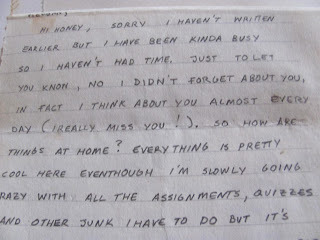 HI HONEY, SORRY I HAVEN'T WRITTEN
EARLIER BUT I HAVE BEEN KINDA BUSY
SO I HAVEN'T HAD TIME. JUST TO LET
YOU KNOW, NO I DIDN'T FORGET ABOUT YOU,
IN FACT I THINK ABOUT YOU ALMOST EVERY
DAY (I REALLY MISS YOU!). SO HOW ARE
THINGS AT HOME? EVERYTHING IS PRETTY
COOL HERE EVENTHOUGH I'M SLOWLY GOING
RAZY WITH ALL THE ASSIGNMENTS, QUIZZES
AND OTHER JUNK I HAVE TO DO BUT IT'S